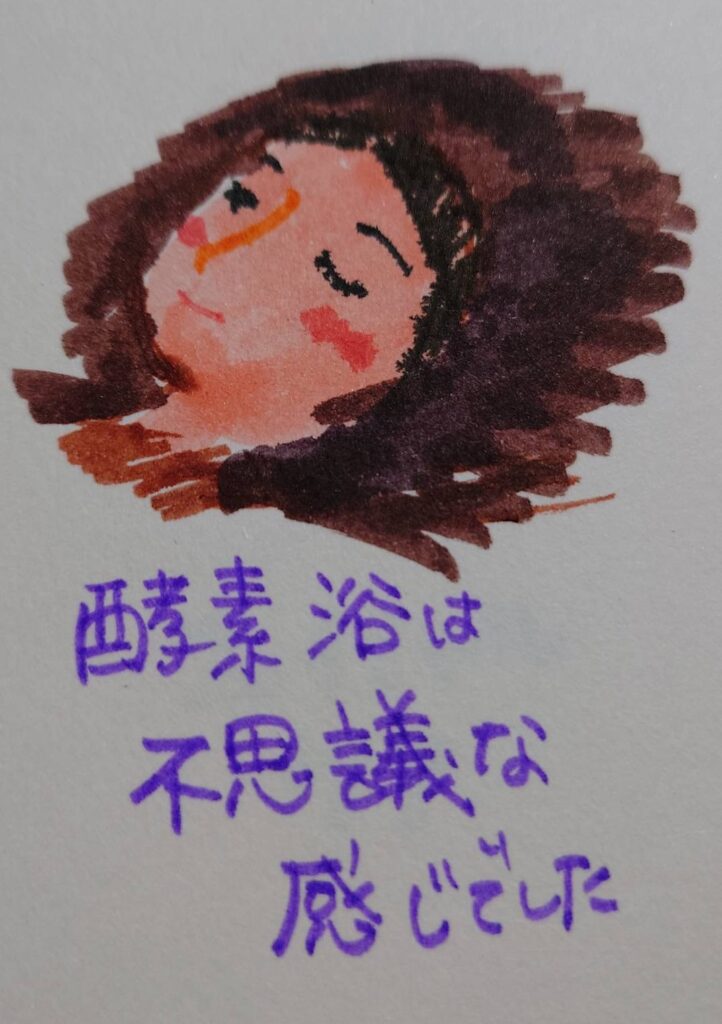 酵素浴は
不思議な
感じでした